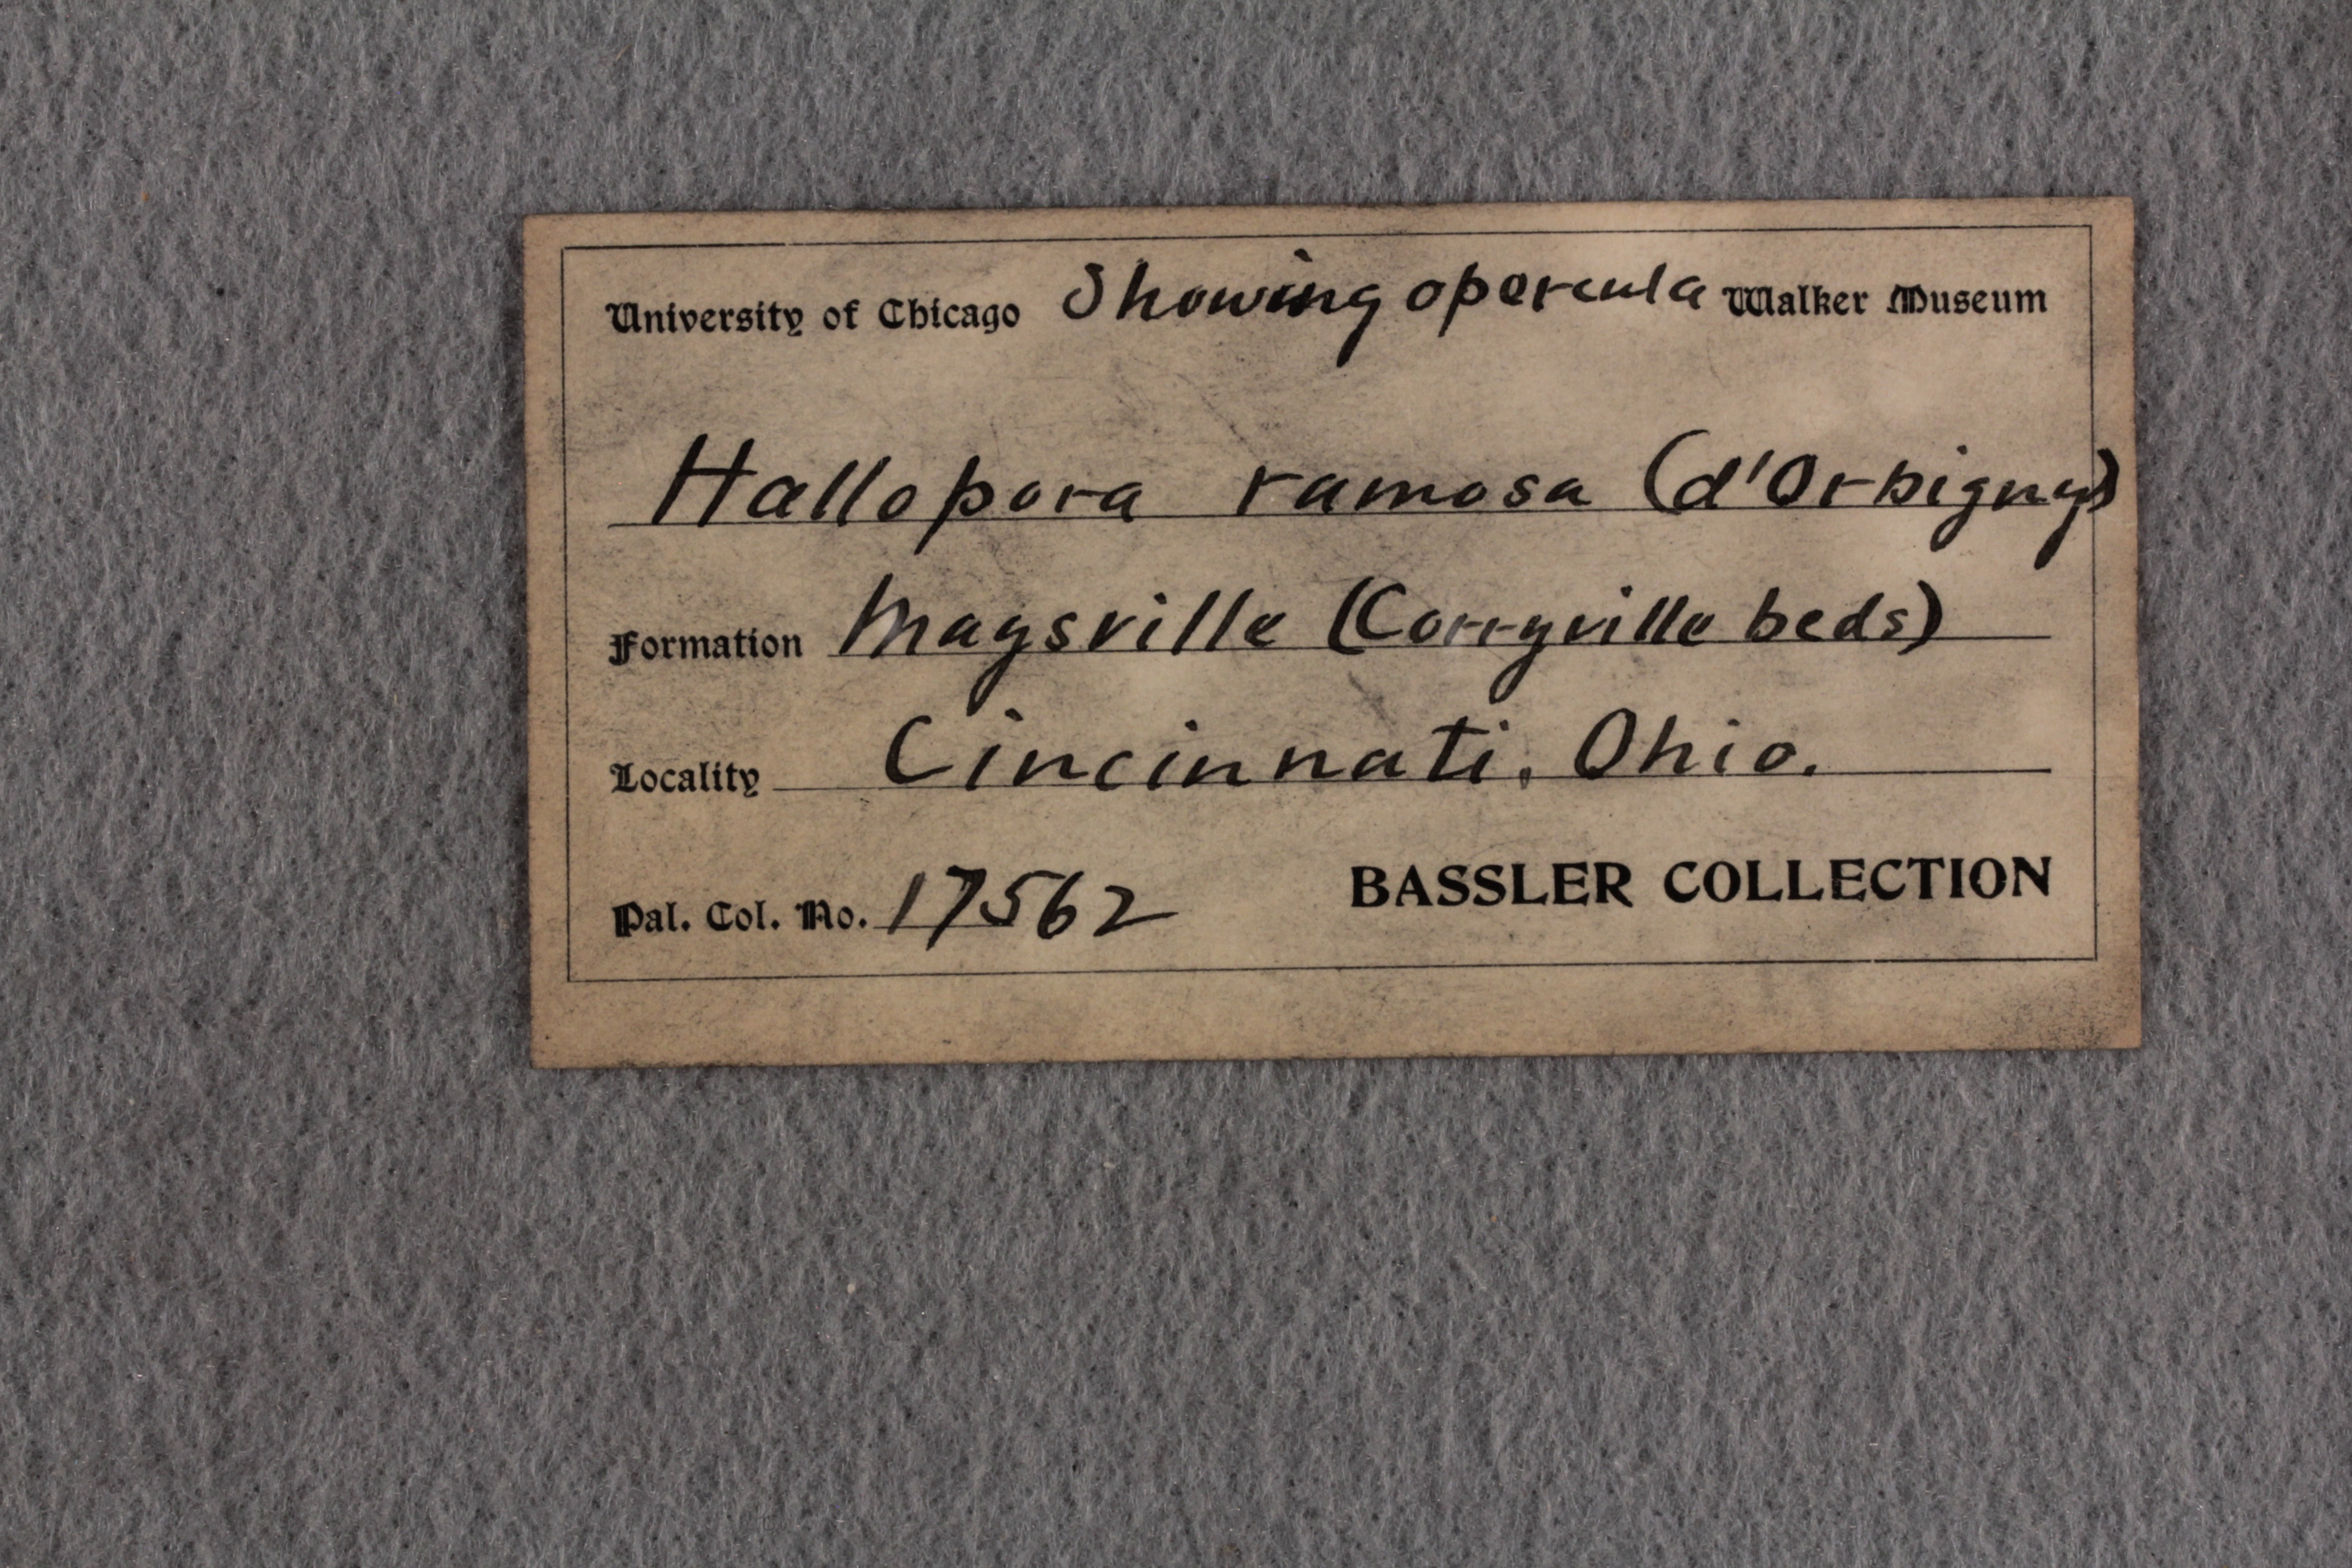 University of Chicago Showing opercula Walker Museum
Hallopora ramosa (d'Orbigny)
Formation Maysville (Corryville beds)
Locality Cincinnati, Ohio.
Pal. Col. No. 17562 BASSLER COLLECTION